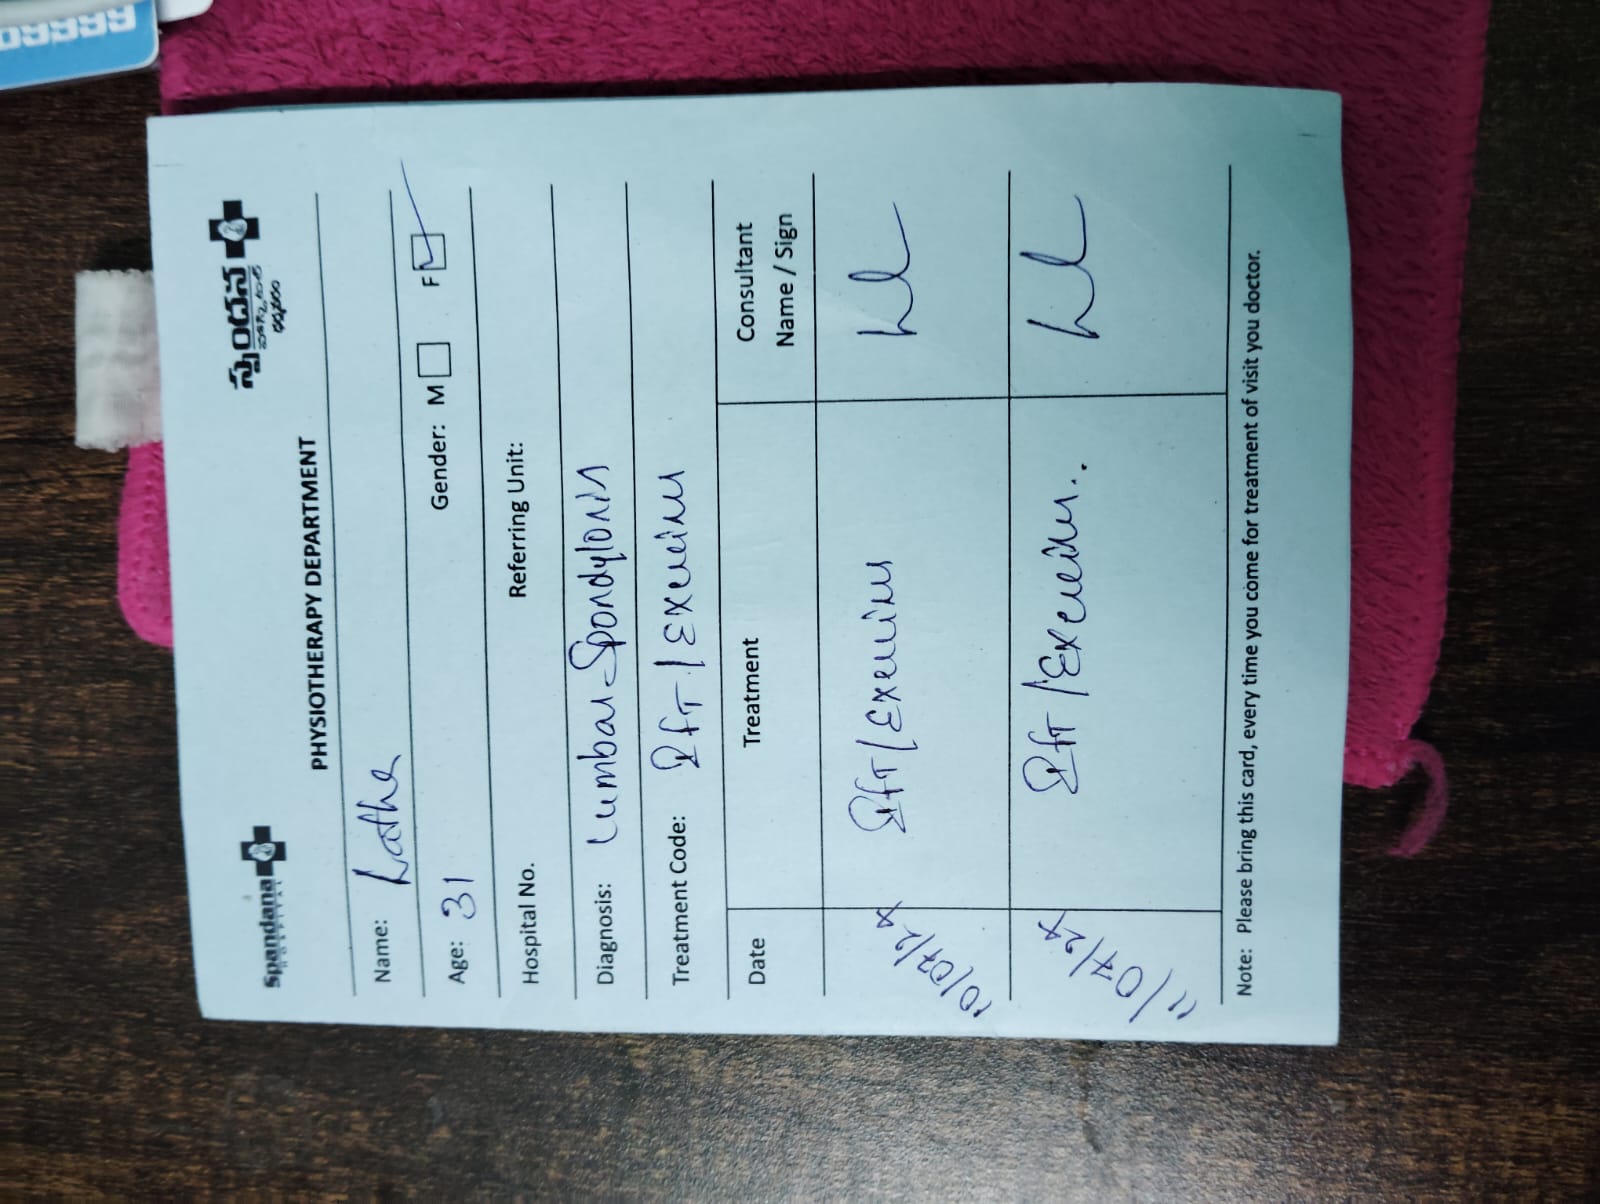 Spandana
HOSPITAL
స్పందన
PHYSIOTHERAPY DEPARTMENT
Name: Latha
Age: 31 Gender: M F
Hospital No. Referring Unit:
Diagnosis: Lumbar Spondylosis
Treatment Code: IFT / Exercises
Date Treatment Consultant
Name / Sign
10/07/24 IFT / Exercises
11/07/24 IFT / Exercises.
Note: Please bring this card, every time you come for treatment of visit you doctor.